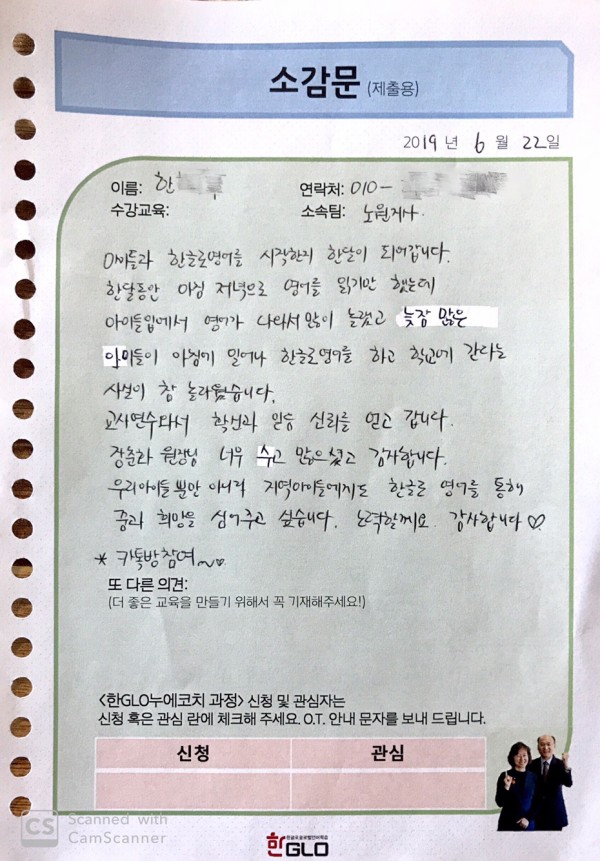 소감문 (제출용)
2019 년 6 월 22일
이름: 한
연락처: 010-
수강교육:
소속팀: 노원지사.
아이들과 한글로영어를 시작한지 한달이 되어갑니다.
한달동안 아침 저녁으로 영어를 읽기만 했는데
아이들입에서 영어가 나와서 많이 놀랬고 늦잠 많은
아이들이 아침에 일어나 한글로영어를 하고 학교에 간다는
사실이 참 놀라웠습니다.
교사연수와서 확신과 믿음 신뢰를 얻고 갑니다.
장춘화 원장님 너무 수고 많으셨고 감사합니다.
우리아이들 뿐만 아니라 지역아이들에게도 한글로 영어를 통해
꿈과 희망을 심어주고 싶습니다. 노력할께요. 감사합니다♡
* 카톡방참여~
또 다른 의견:
(더 좋은 교육을 만들기 위해서 꼭 기재해주세요!)
<한GLO누에코치 과정> 신청 및 관심자는
신청 혹은 관심 란에 체크해 주세요. O.T. 안내 문자를 보내 드립니다.
신청
관심
CS Scanned with
CamScanner
한GLO